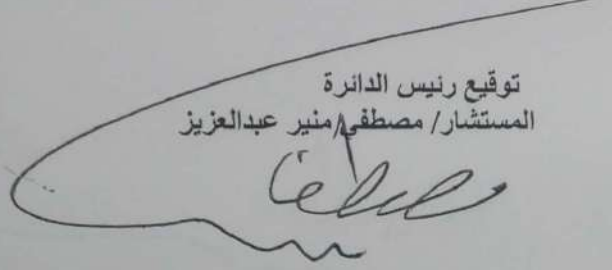 توقيع رئيس الدائرة
المستشار/ مصطفي/منير عبدالعزيز
مصطفى